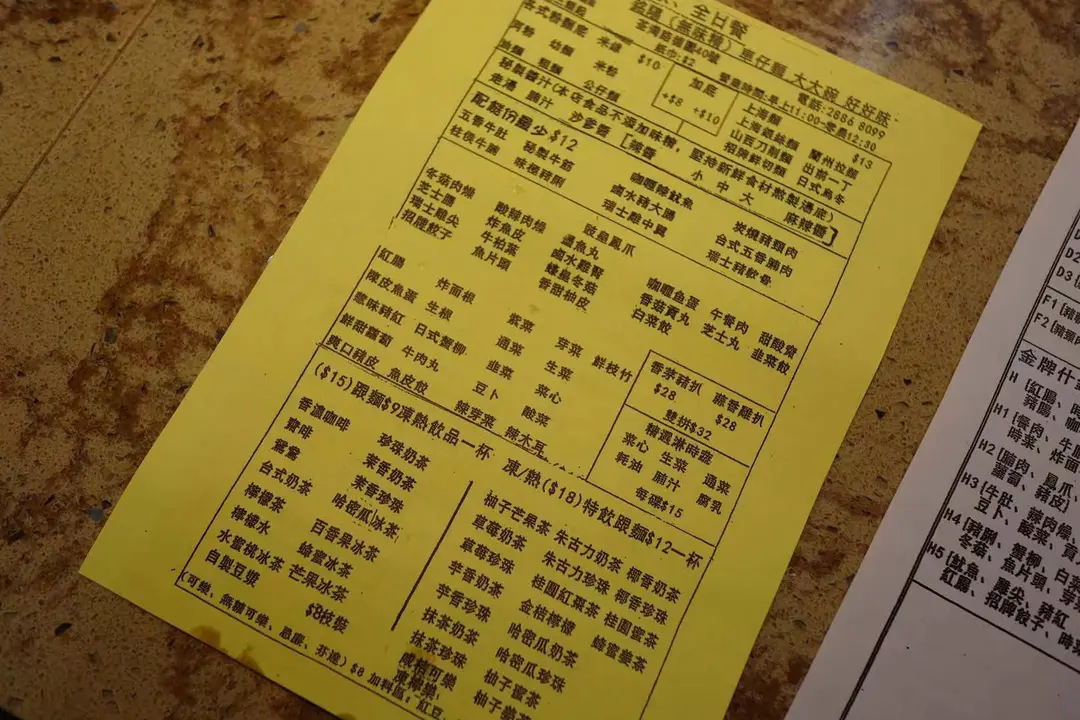 全日餐
(無味精) 車仔麵 大大碗 好好味
電話:2886 8099
營業時間:早上11:00-零晨12:30
各式粉麵底 米線 $10
河粉 幼麵 米粉
粗麵 公仔麵
加底
+$8 +$10
上海麵 蘭州拉麵 $13
上海銀絲麵 出前一丁
山西刀削麵 日式烏冬
招牌鮮切麵
秘製醬汁(本店食品不添加味精,堅持新鮮食材熬製湯底)
走湯 腩汁 沙爹醬 [辣醬 小 中 大 麻辣醬]
配餸份量少 $12
五香牛肚 秘製牛筋 咖喱魷魚 炭燒豬頸肉
柱侯牛腩 鹵水豬大腸 台式五香腩肉
瑞士雞中翼 瑞士豬軟骨
冬菇肉燥 酸辣肉燥 豉皇鳳爪 咖喱魚蛋 午餐肉 甜酸齋
芝士腸 炸魚皮 墨魚丸 香菇貢丸 芝士丸 韭菜餃
瑞士雞尖 牛柏葉 鹵水雞腎 白菜餃
招牌餃子 魚片頭 蠔皇冬菇
香甜柚皮
紅腸 炸面根 紫菜 芽菜 鮮枝竹
陳皮魚蛋 生根 通菜 生菜
意味豬紅 日式蟹柳 韭菜 菜心
鮮甜蘿蔔 牛肉丸 豆卜
爽口豬皮 魚皮餃 辣芽菜 辣木耳
香芽豬扒 $28 蔴香雞扒 $28
雙拼$32
精選淋時蔬
菜心 生菜 通菜
蚝油 腩汁 腐乳
每碟$15
($15)跟麵$9凍熱飲品一杯
香濃咖啡 珍珠奶茶
齋啡 茉香奶茶
鴛鴦 茉香珍珠
台式奶茶 哈密瓜冰茶
檸檬茶 百香果冰茶
檸檬水 蜂蜜冰茶
水蜜桃冰茶 芒果冰茶
自製豆漿 $8枝裝
(可樂、無糖可樂、忌廉、芬達) $8 加料區:紅豆
凍/熱($18)特飲跟麵$12一杯
柚子芒果茶 朱古力奶茶 椰香奶茶
草莓奶茶 朱古力珍珠 椰香珍珠
草莓珍珠 桂圓紅棗茶 桂圓蜜茶
芋香奶茶 金桔檸檬 蜂蜜姜茶
芋香珍珠 哈密瓜奶茶
抹茶奶茶 哈密瓜珍珠
抹茶珍珠 柚子蜜茶
咸檸可樂
D2
D3
F1[豬
F2[豬頸
金牌什
H [紅腸、時
豬腸、咖
H1[餐肉、牛
時菜、炸面
H2[腩肉、鳳爪、
蘿蔔、豬皮]
H3[牛肚、辣肉燥、
豆卜、酸菜、貢
H4[豬脷、蟹柳、白菜
冬菇、魚片頭、芽
H5[魷魚、雞尖、豬紅
紅腸、招牌餃子、時